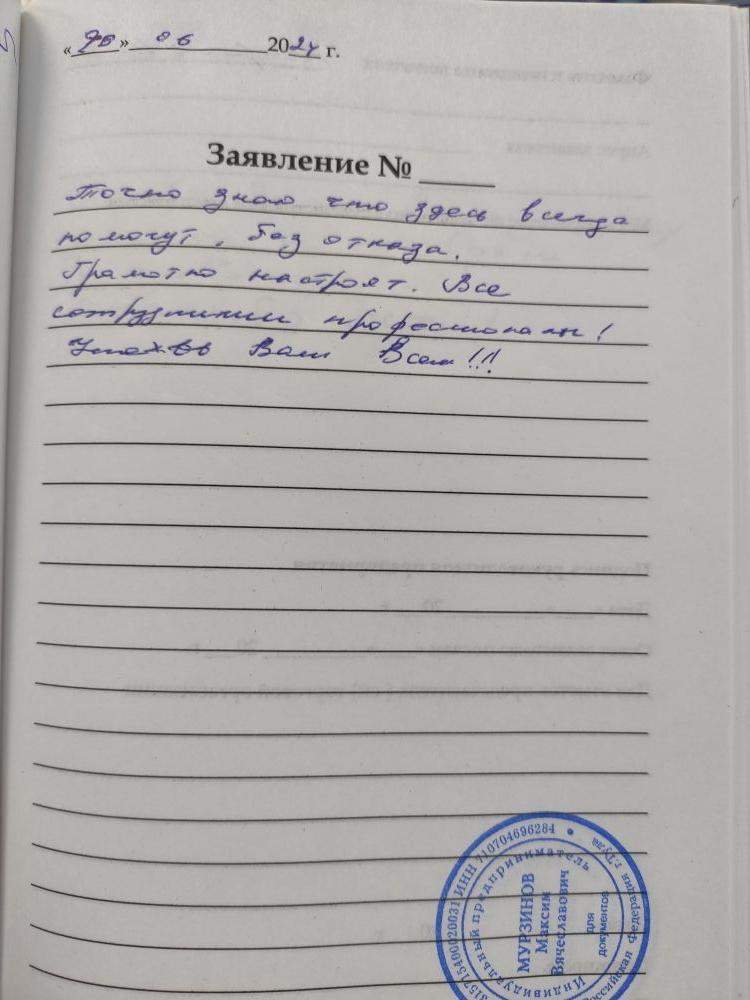 « » 06 2024 г.
Заявление №
Точно знаю что здесь всегда
помогут, без отказа.
Грамотно настроят. Все
сотрудники професионалы!
Успехов Вам Всем!!!
315715400020031 ИНН 710704696284 • Российская Федерация г.Тула
Индивидуальный предприниматель
МУРЗИНОВ
Максим
Вячеславович
для
документов